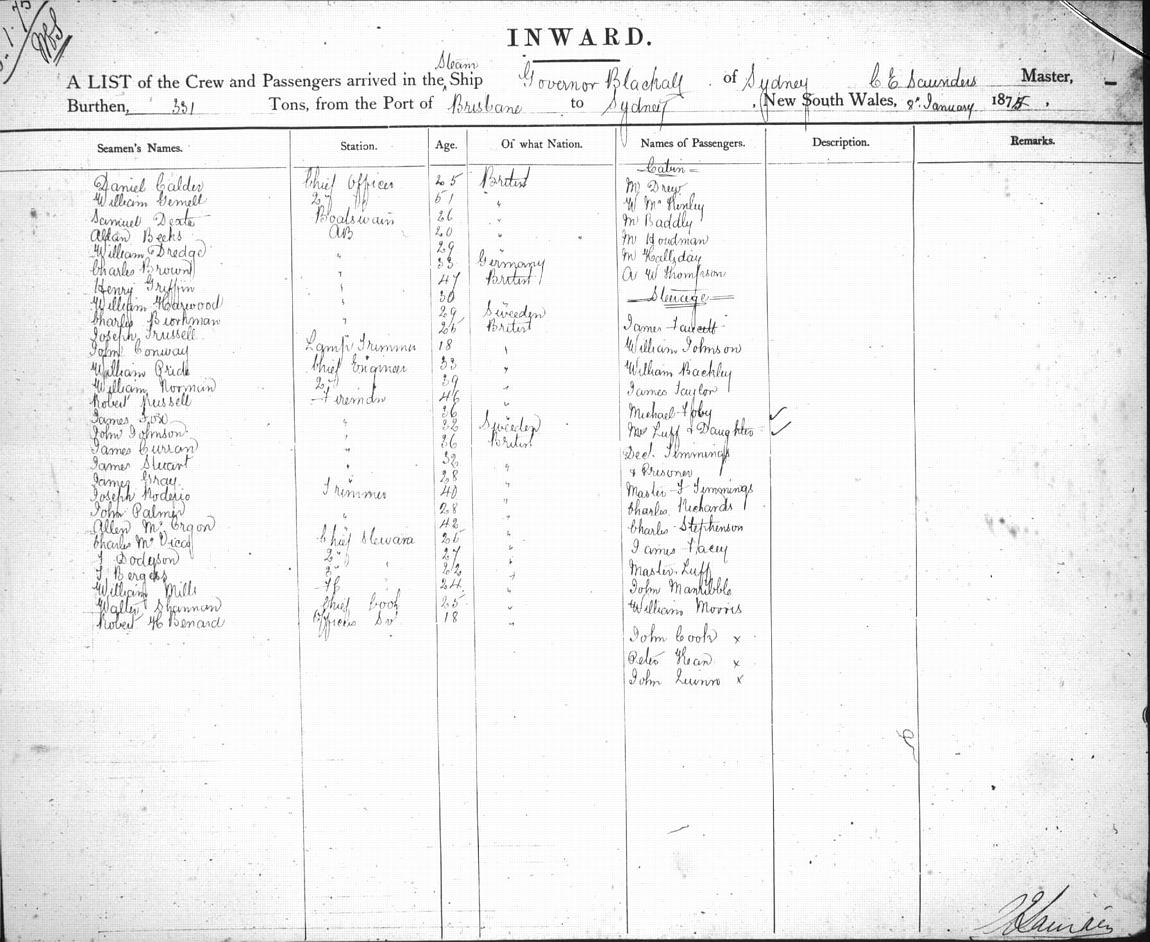 INWARD.
Steam
A LIST of the Crew and Passengers arrived in the Ship Governor Blackall of Sydney C E Saunders Master,
Burthen, 331 Tons, from the Port of Brisbane to Sydney , New South Wales, 8th January 1875 ,
Seamen's Names. Station. Age. Of what Nation. Names of Passengers. Description. Remarks.
Cabin
Daniel Calder Chief Officer 25 British Mr Drew
William Gemell 2nd " 51 " W McKinley
Samuel Dexte Boatswain 26 " Mr Baddly
Allan Beeks AB 20 " Mr Hoodman
William Dredge " 29 " Mr Hallsday
Charles Brown " 33 Germany A W Thompson
Henry Griffin " 47 British
William Harwood " 30 Steerage
Charles Biorkman " 29 Sweeden
Joseph Trussell " 26 British James Fawcett
John Conway Lamp Trimmer 18 " William Johnson
William Pride Chief Engineer 33 " William Backley
William Norman 2nd " 39 " James Taylor
Robert Russell Fireman 46 "
James Fox " 36 " Michael Foby
John Johnson " 32 Sweeden Mrs Luff & Daughter
James Curran " 36 British Det. Timmings
James Stuart " 32 " & Prisoner
James Gray " 28 " Master F Timmings
Joseph Rodeno Trimmer 40 " Charles Richards
John Palmer " 28 " Charles Stephenson
Allen McErgon " 42 "
Charles McVicar Chief Steward 26 " James Facey
J Dodgson 2nd " 27 " Master Luff
J Bergess 3rd " 22 " John Manribble
William Mills 24 " William Morris
Walter Shannan Chief Cook 25 "
Robert H Benard Officers Sv 18 " John Cook x
Peter Kean x
John Quinn x